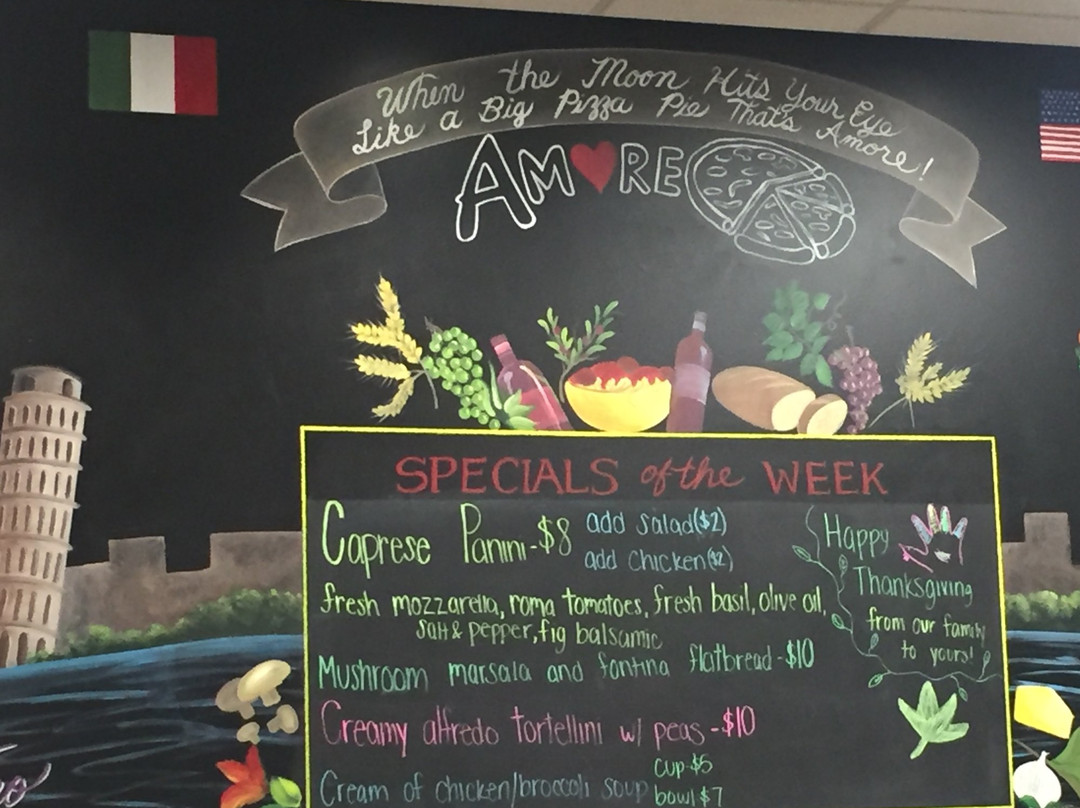 When the Moon Hits Your Eye
Like a Big Pizza Pie That's Amore!
AMORE
SPECIALS of the WEEK
Caprese Panini-$8
add salad($2)
add chicken($2)
fresh mozzarella, roma tomatoes, fresh basil, olive oil,
salt & pepper, fig balsamic
Mushroom marsala and fontina flatbread-$10
Creamy alfredo tortellini w/ peas-$10
Cream of chicken/broccoli soup
cup-$5
bowl $7
Happy
Thanksgiving
from our family
to yours!